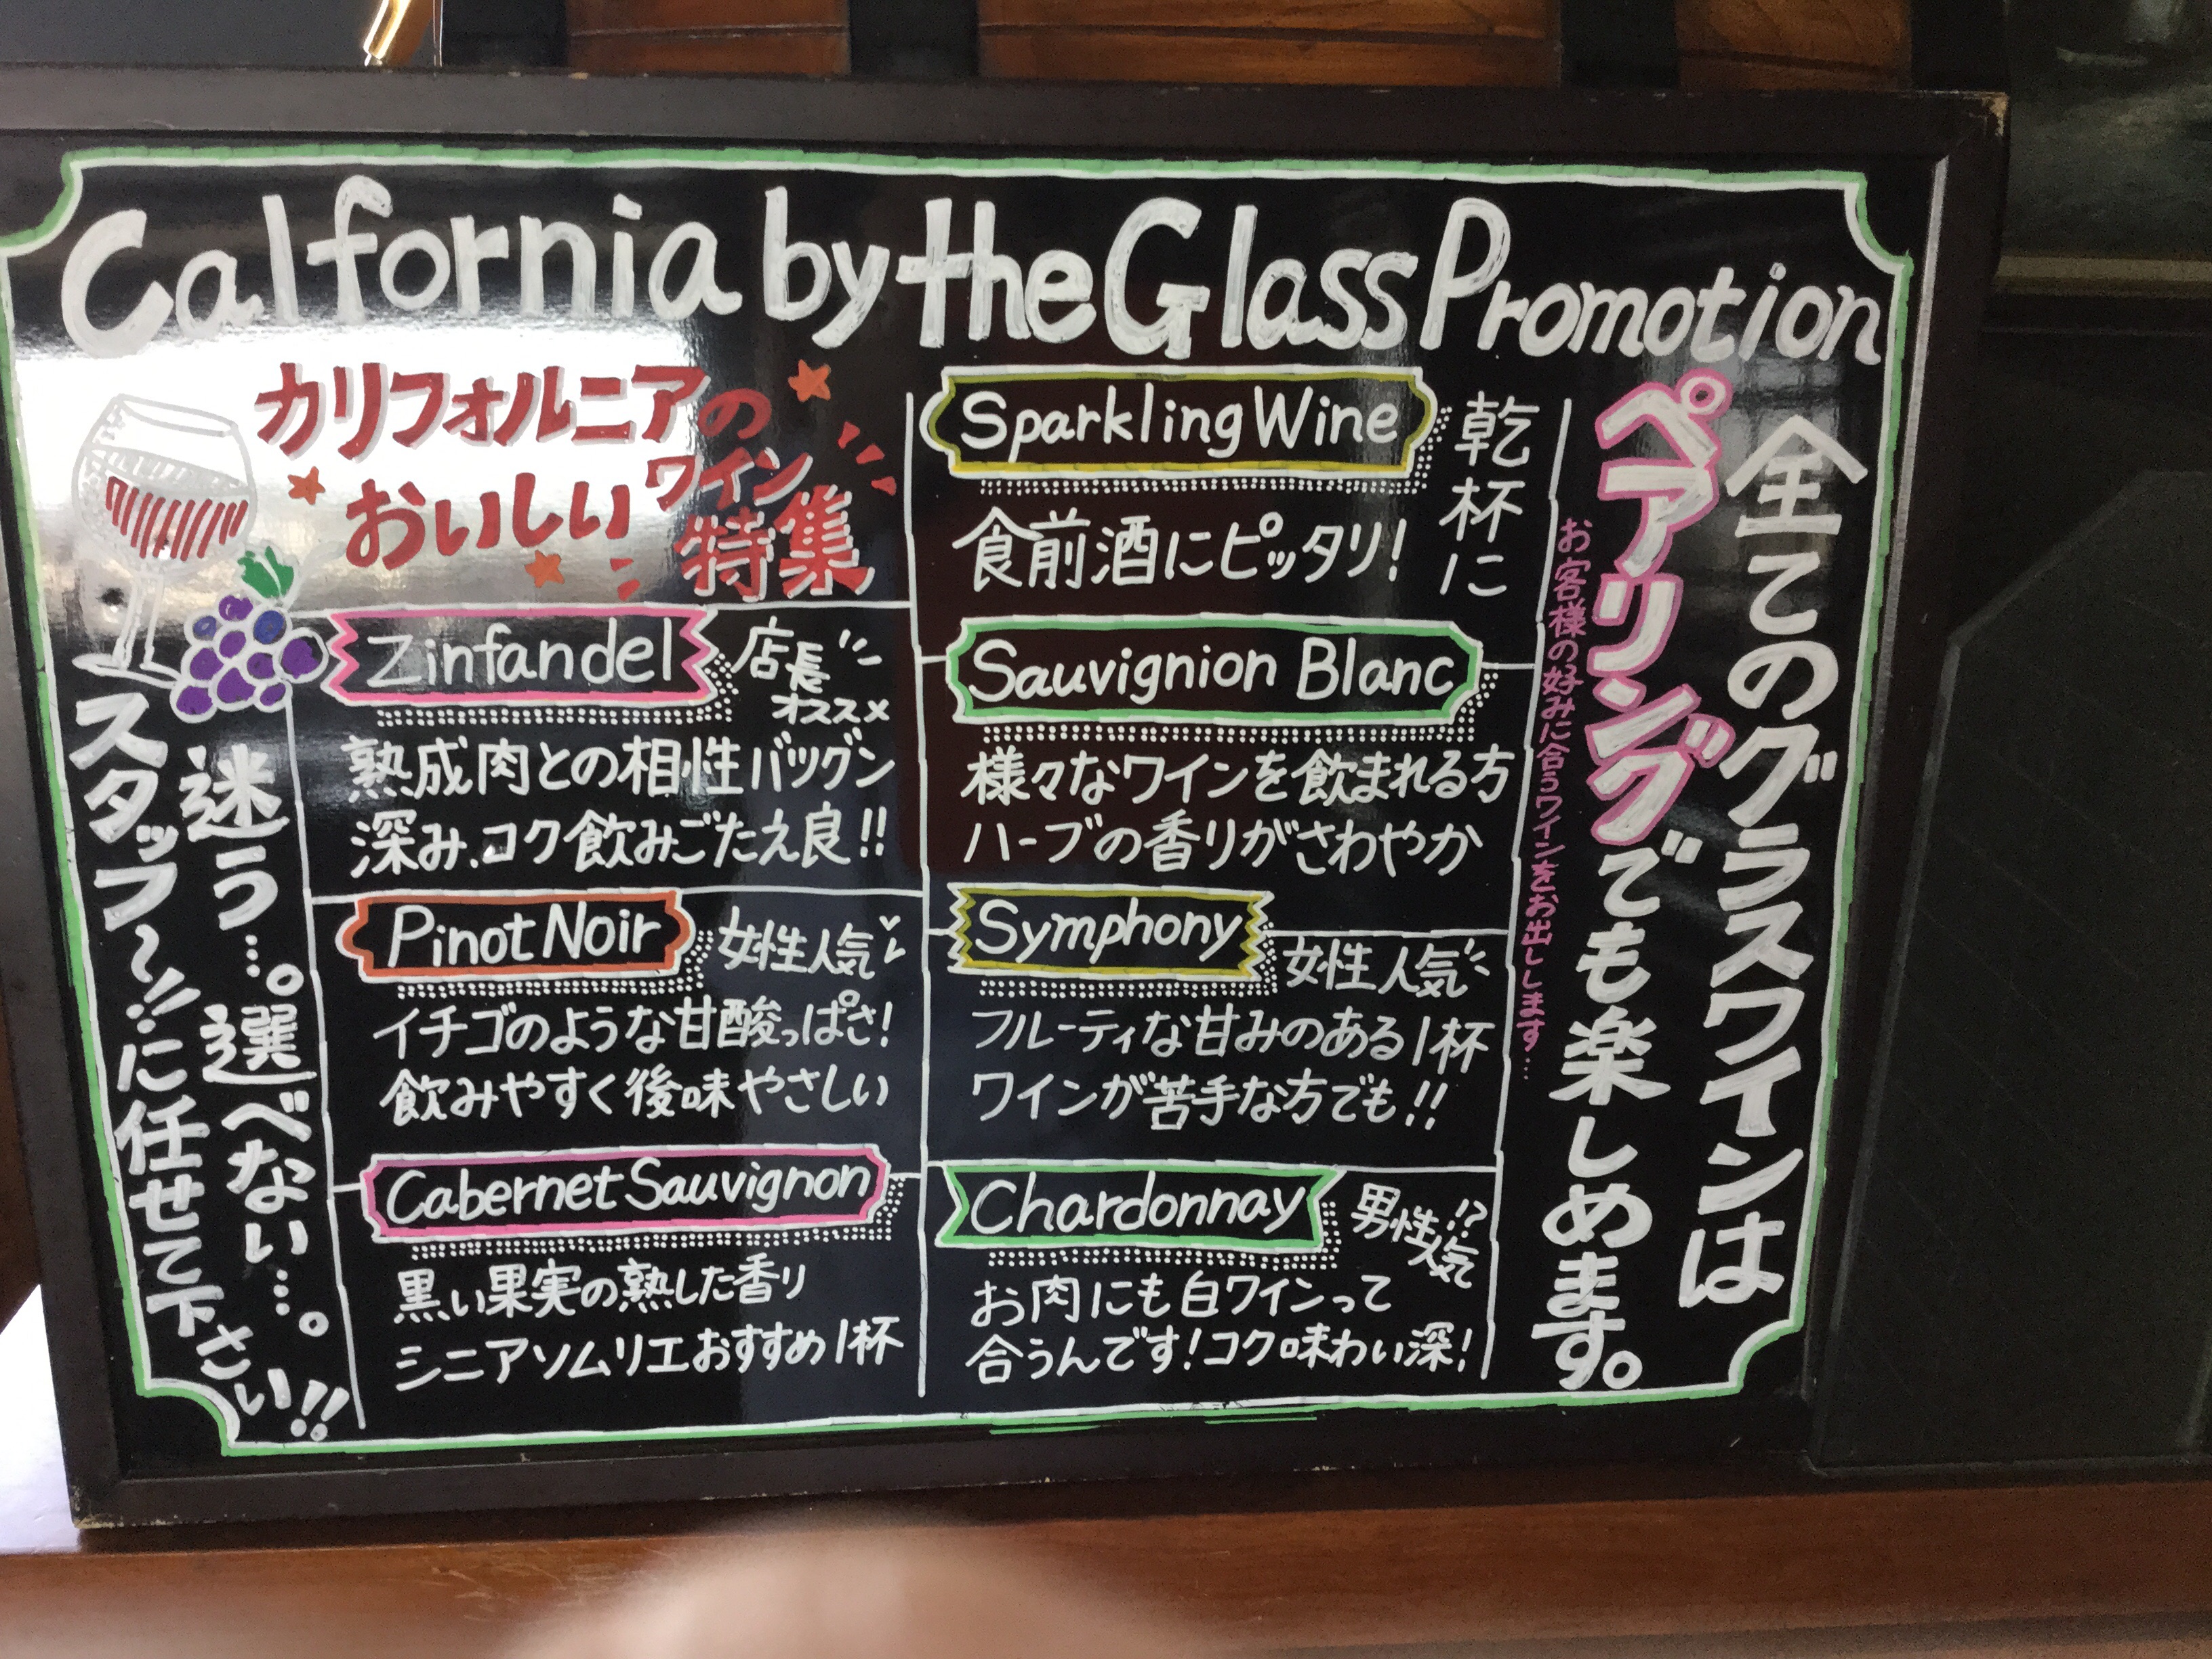 Calfornia by the Glass Promotion
カリフォルニアの
おいしいワイン
特集
Zinfandel
店長
オススメ
熟成肉との相性バツグン
深み、コク飲みごたえ良!!
Pinot Noir
女性人気
イチゴのような甘酸っぱさ!
飲みやすく後味やさしい
Cabernet Sauvignon
黒い果実の熟した香り
シニアソムリエおすすめ1杯
Sparkling Wine
乾杯に
食前酒にピッタリ!
Sauvignion Blanc
様々なワインを飲まれる方
ハーブの香りがさわやか
Symphony
女性人気
フルーティな甘みのある1杯
ワインが苦手な方でも!!
Chardonnay
男性人気!?
お肉にも白ワインって
合うんです!コク味わい深!
全てのグラスワインは
ペアリングでも楽しめます。
お客様の好みに合うワインをお出しします…
迷う…。選べない…。
スタッフ〜!!に任せて下さい!!